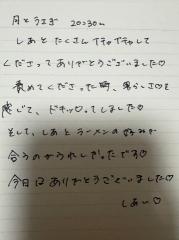 月とうさぎ 20:30〜
しあとたくさんイチャイチャして
くださってありがとうございました♡
責めてくださった時、男らしさを
感じて、ドキッ♡ってしました♡
そして、しあとラーメンの好みが
合うのがうれしかったです♡
今日はありがとうございました♡
しあ♡